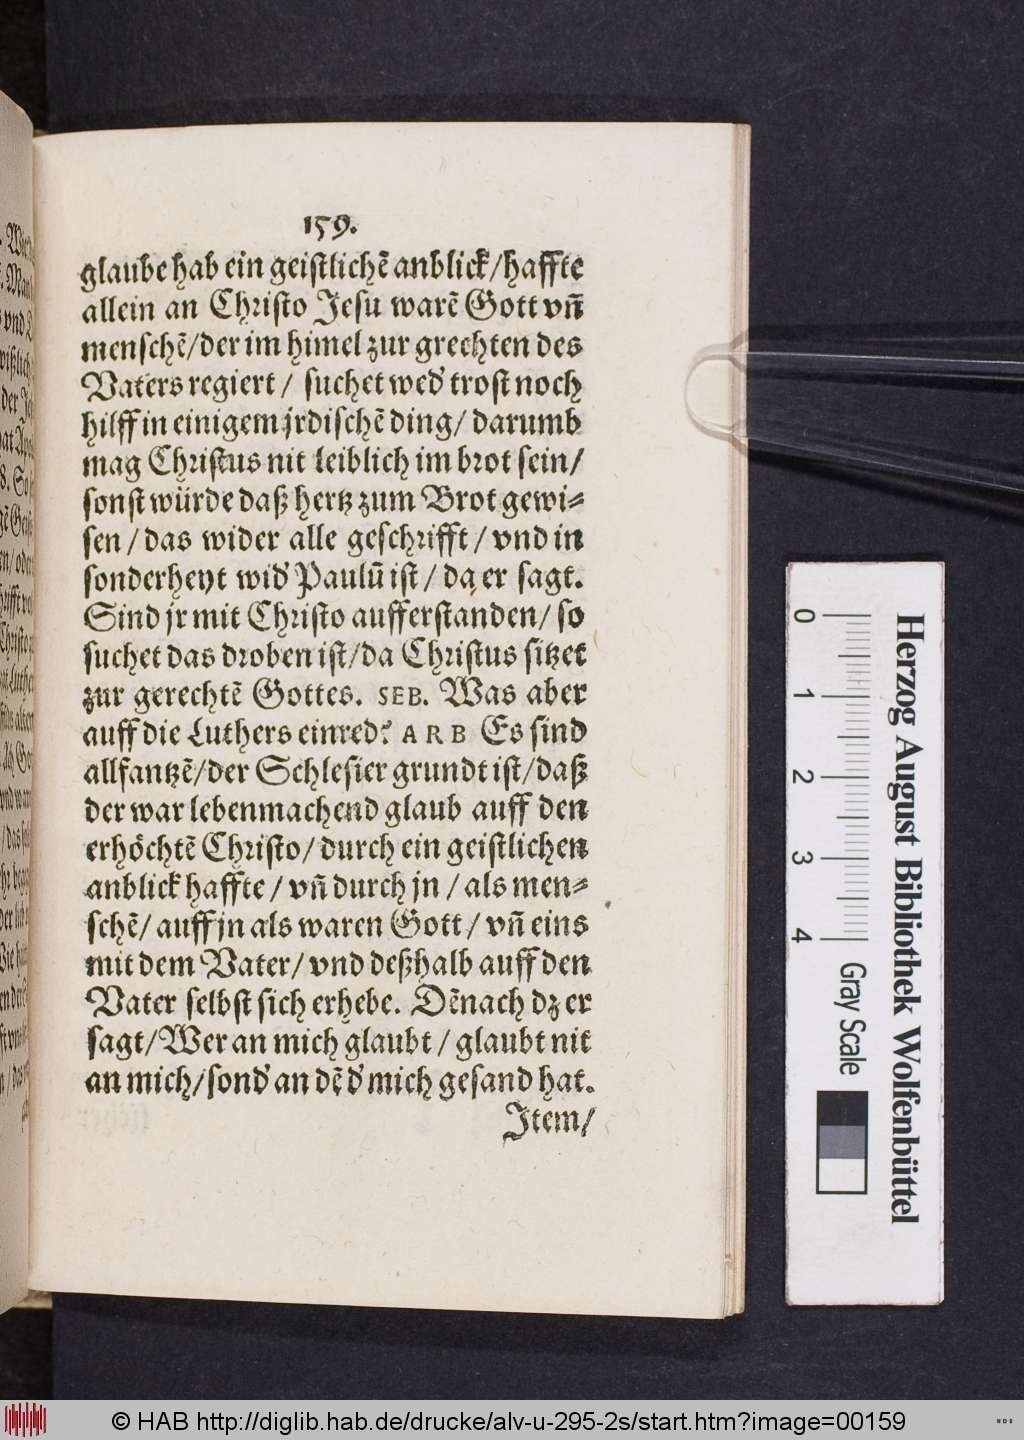 159.
glaube hab ein geistlichẽ anblick/haffte
allein an Christo Jesu warẽ Gott vñ
menschẽ/der im himel zur grechten des
Vaters regiert / suchet wed' trost noch
hilff in einigem jrdischẽ ding/ darumb
mag Christus nit leiblich im brot sein/
sonst würde daß hertz zum Brot gewi-
sen / das wider alle geschrifft / vnd in
sonderheyt wid' Paulũ ist / da er sagt.
Sind jr mit Christo aufferstanden/ so
suchet das droben ist/da Christus sitzet
zur gerechtẽ Gottes. SEB. Was aber
auff die Luthers einred? ARB Es sind
allfantzẽ/der Schlesier grundt ist/daß
der war lebenmachend glaub auff den
erhöchtẽ Christo/ durch ein geistlichen
anblick haffte / vñ durch jn / als men-
schẽ/ auff jn als waren Gott / vñ eins
mit dem Vater/ vnd deßhalb auff den
Vater selbst sich erhebe. Dẽnach dz er
sagt/Wer an mich glaubt / glaubt nit
an mich/sond' an dẽ d' mich gesand hat.
Item/
0 1 2 3 4
Gray Scale
Herzog August Bibliothek Wolfenbüttel
© HAB http://diglib.hab.de/drucke/alv-u-295-2s/start.htm?image=00159